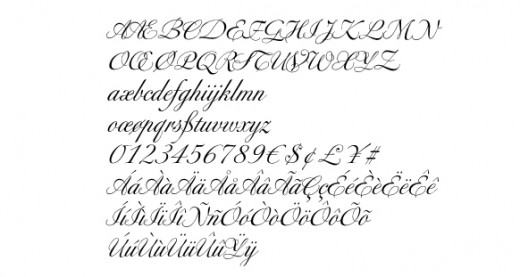 AÆBCDEFGHIJKLMN
OŒØPQRSTUVWXYZ
aæbcdefghiijklmn
oœøpqrsßtuvwxyz
0123456789€$¢£¥#
ÁáÀàÄäÅåÂâÃãÇçÉéÈèËëÊê
ÍíÌìÏïÎîÑñÓóÒòÖöÔôÕõ
ÚúÙùÜüÛûŸÿ